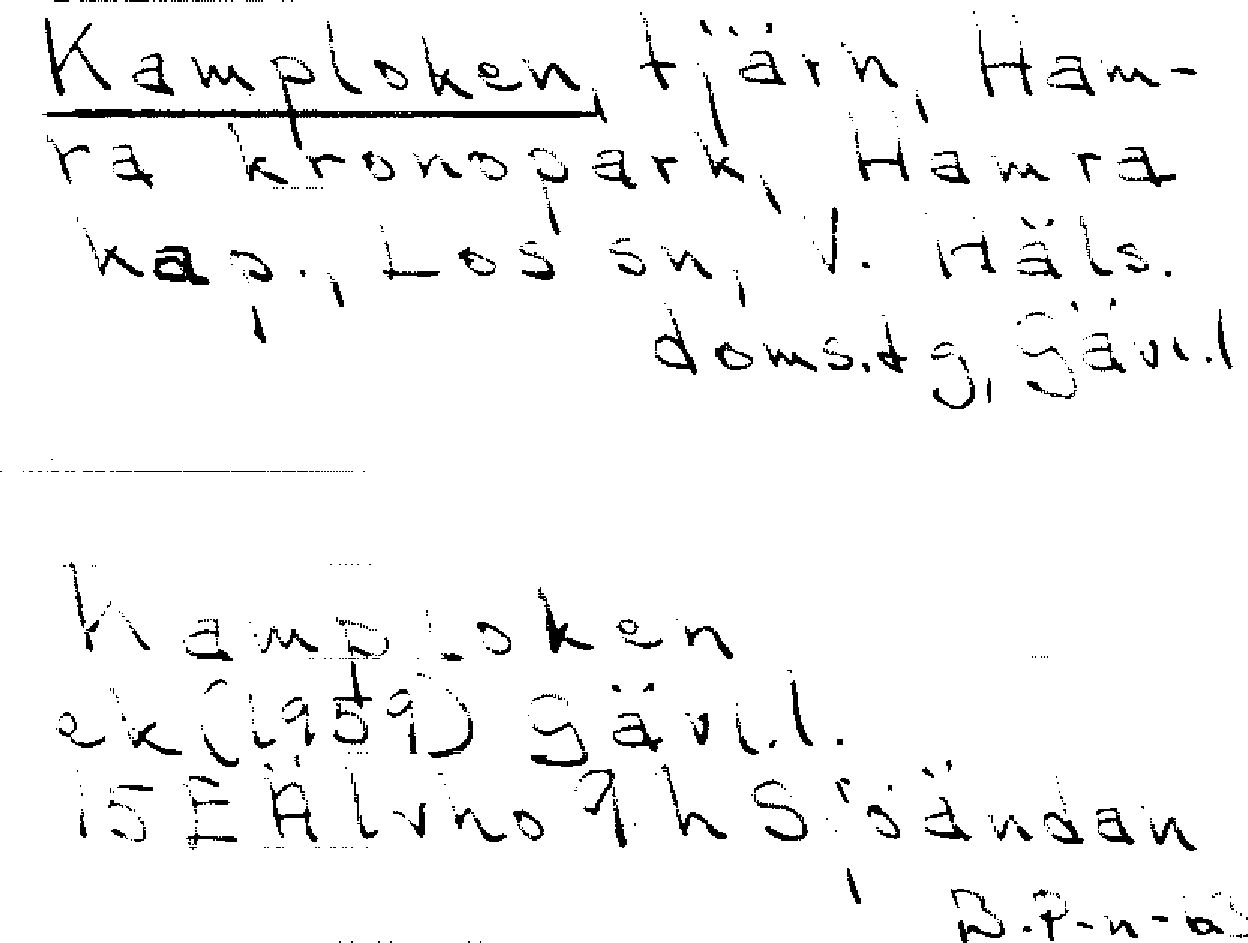 Kamploken, tjärn, Ham-
ra kronopark, Hamra
kap., Los sn, V. Häls.
doms.tg, Gävl.l
Kamploken
ek (1959) Gävl.l.
15E Älvho 9h Sjöändan